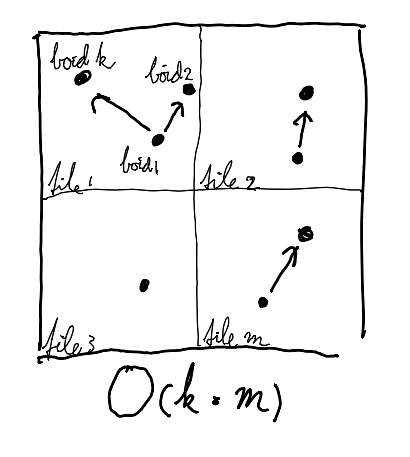 boid k
boid2
boid1
tile 1
tile 2
tile 3
tile m
O(k · m)